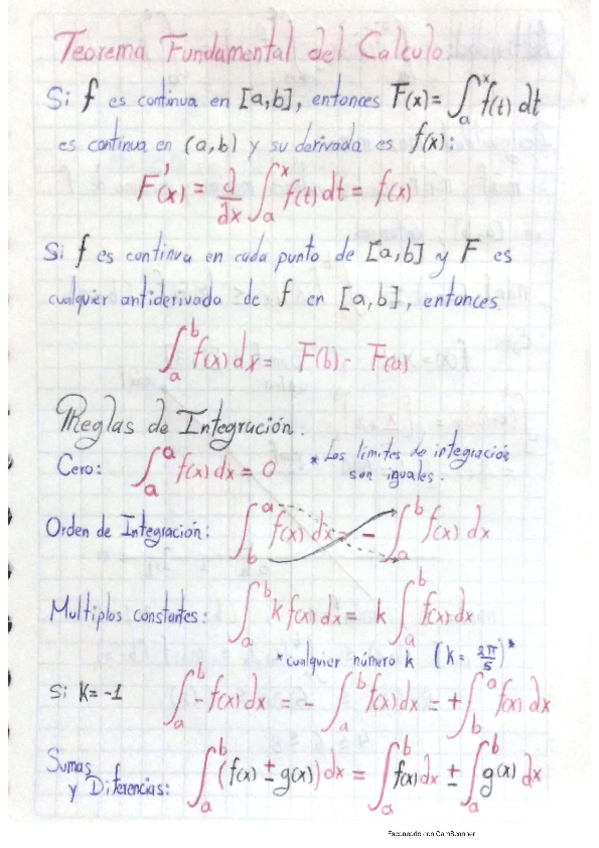 Teorema Fundamental del Calculo.
Si f es continua en [a,b], entonces F(x) = ∫ₐˣ f(t) dt
es continua en (a,b) y su derivada es f(x):
F'(x) = d/dx ∫ₐˣ f(t) dt = f(x)
Si f es continua en cada punto de [a,b] y F es
cualquier antiderivada de f en [a,b], entonces.
∫ₐᵇ f(x) dx = F(b) - F(a)
Reglas de Integración.
Cero: ∫ₐᵃ f(x) dx = 0 * Los límites de integración
son iguales.
Orden de Integración: ∫_b^a f(x) dx = - ∫_a^b f(x) dx
Multiplos constantes: ∫_a^b k f(x) dx = k ∫_a^b f(x) dx
*cualquier número k (k = 2π/5)*
Si k = -1 ∫_a^b -f(x) dx = - ∫_a^b f(x) dx = + ∫_b^a f(x) dx
Sumas
y Diferencias: ∫_a^b (f(x) ± g(x)) dx = ∫_a^b f(x) dx ± ∫_a^b g(x) dx
Escaneado con CamScanner